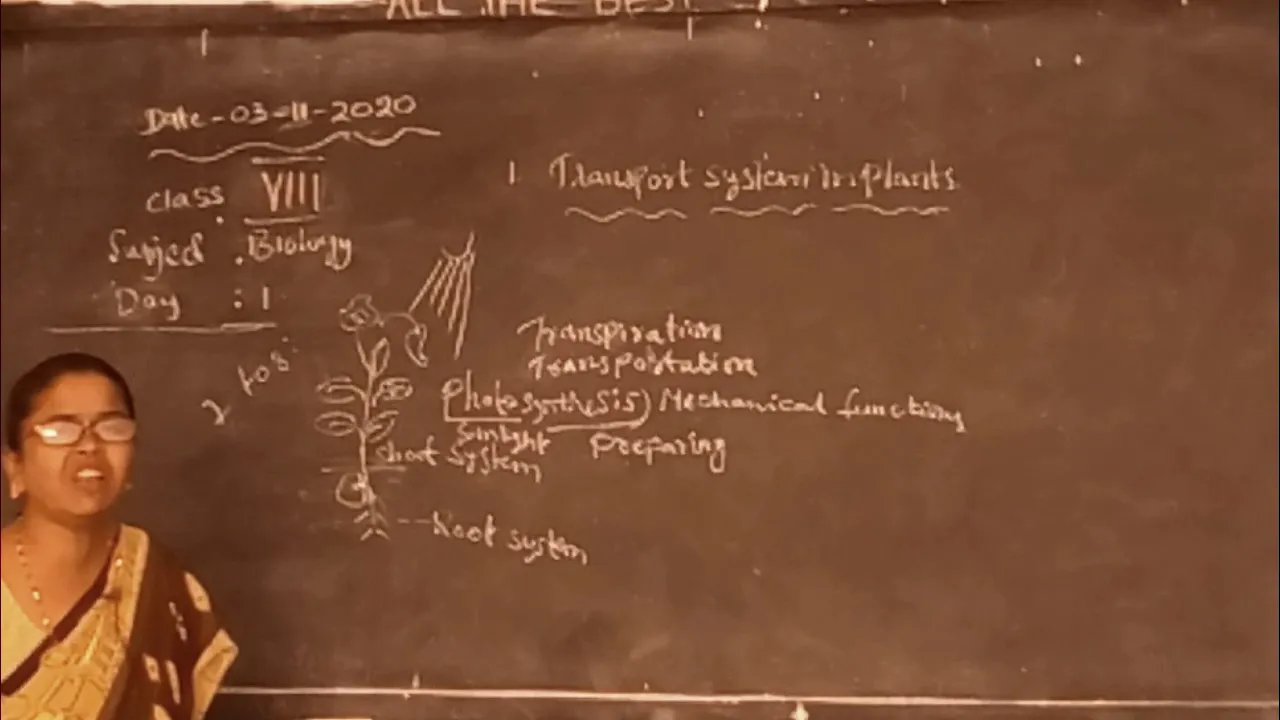 ALL THE BEST
Date - 03-11-2020
class VIII
Subject : Biology
Day : 1
1. Transport system in plants
Transpiration
Transportation
Photosynthesis) Mechanical functions
Sunlight preparing
shoot system
Root system